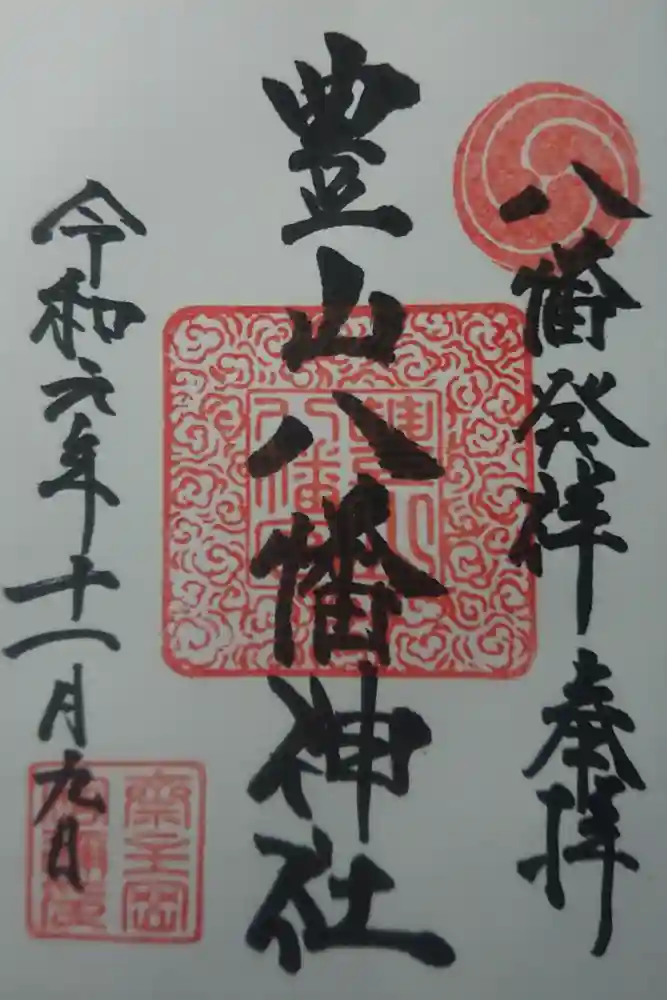 八幡発祥 奉拝
豊山八幡神社
令和元年十一月九日